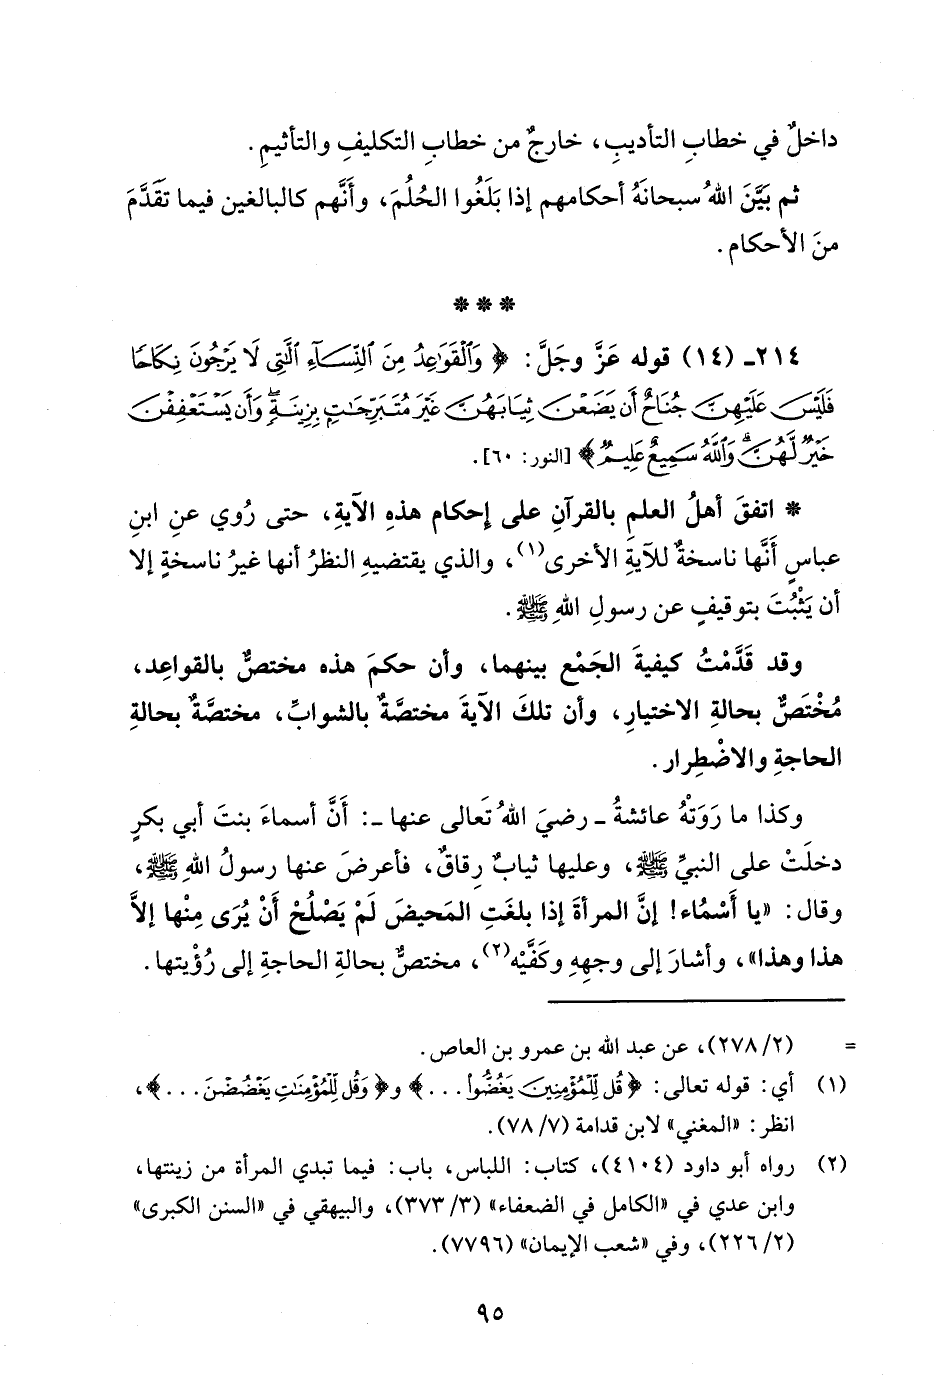 داخلٌ في خطابِ التأديبِ، خارجٌ من خطابِ التكليفِ والتأثيمِ.
ثم بَيَّنَ اللهُ سبحانَهُ أحكامهم إذا بَلَغُوا الحُلُمَ، وأَنَّهم كالبالغين فيما تَقَدَّمَ
منَ الأحكام.
* * *
٢١٤ـ (١٤) قوله عَزَّ وجَلَّ: ﴿ وَٱلْقَوَٰعِدُ مِنَ ٱلنِّسَآءِ ٱلَّٰتِى لَا يَرْجُونَ نِكَاحًا
فَلَيْسَ عَلَيْهِنَّ جُنَاحٌ أَن يَضَعْنَ ثِيَابَهُنَّ غَيْرَ مُتَبَرِّجَٰتٍۭ بِزِينَةٍۖ وَأَن يَسْتَعْفِفْنَ
خَيْرٌ لَّهُنَّۗ وَٱللَّهُ سَمِيعٌ عَلِيمٌ ﴾ [النور: ٦٠].
* اتفقَ أهلُ العلمِ بالقرآنِ على إحكام هذهِ الآيةِ، حتى رُوي عنِ ابنِ
عباسٍ أَنَّها ناسخةٌ للآيةِ الأخرى(١)، والذي يقتضيهِ النظرُ أنها غيرُ ناسخةٍ إلا
أن يَثْبُتَ بتوقيفٍ عن رسولِ اللهِ ﷺ.
وقد قَدَّمْتُ كيفيةَ الجَمْعِ بينهما، وأن حكمَ هذه مختصٌّ بالقواعد،
مُخْتَصٌّ بحالةِ الاختيارِ، وأن تلكَ الآيةَ مختصَّةٌ بالشوابِّ، مختصَّةٌ بحالةِ
الحاجةِ والاضْطِرار.
وكذا ما رَوَتْهُ عائشةُ ـ رضيَ اللهُ تَعالى عنها ـ: أَنَّ أسماءَ بنتَ أبي بكرٍ
دخلَتْ على النبيِّ ﷺ، وعليها ثيابٌ رِقاقٌ، فأعرضَ عنها رسولُ اللهِ ﷺ،
وقال: «يا أَسْمُاء! إنَّ المرأةَ إذا بلغَتِ المَحيضَ لَمْ يَصْلُحْ أَنْ يُرَى مِنْها إلاَّ
هذا وهذا»، وأشارَ إلى وجههِ وكَفَّيْه(٢)، مختصٌّ بحالةِ الحاجةِ إلى رُؤْيتها.
= (٢/ ٢٧٨)، عن عبد الله بن عمرو بن العاص.
(١) أي: قوله تعالى: ﴿ قُل لِّلْمُؤْمِنِينَ يَغُضُّواْ . . . ﴾ و﴿ وَقُل لِّلْمُؤْمِنَٰتِ يَغْضُضْنَ . . . ﴾،
انظر: «المغني» لابن قدامة (٧/ ٧٨).
(٢) رواه أبو داود (٤١٠٤)، كتاب: اللباس، باب: فيما تبدي المرأة من زينتها،
وابن عدي في «الكامل في الضعفاء» (٣/ ٣٧٣)، والبيهقي في «السنن الكبرى»
(٢/ ٢٢٦)، وفي «شعب الإيمان» (٧٧٩٦).
٩٥